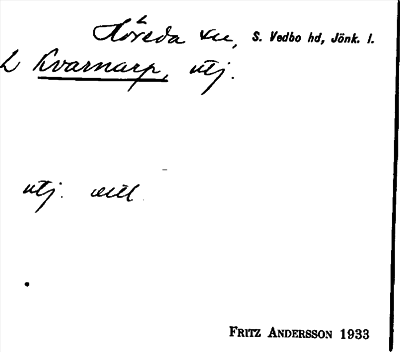 Höreda sn, S. Vedbo hd, Jönk. l.
L Kvarnarp, utj.
utj.
FRITZ ANDERSSON 1933